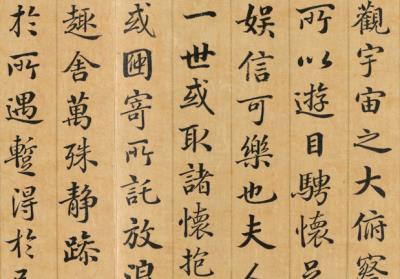 觀宇宙之大俯察
所以遊目騁懷足
娛信可樂也夫人
一世或取諸懷抱
或因寄所託放浪
趣舍萬殊靜躁
於所遇暫得於